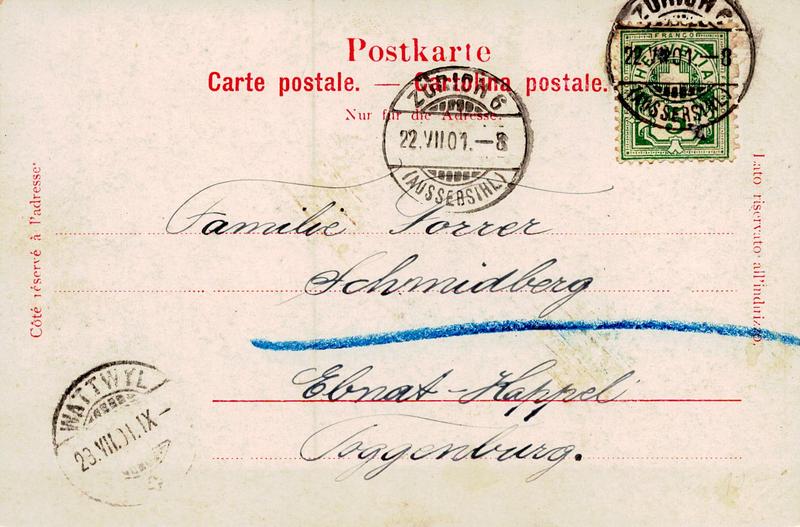 Postkarte
Carte postale. — Cartolina postale.
Nur für die Adresse.
ZÜRICH 6
22.VII.01.–8
(AUSSERSIHL)
ZÜRICH 6
22.VII.01.–8
(AUSSERSIHL)
FRANCO
HELVETIA
5
Côté réservé à l'adresse.
Lato riservato all'indirizzo
Familie Forrer
Schmidberg
Ebnat-Kappel
Toggenburg.
WATTWYL
23.VII.01.IX–